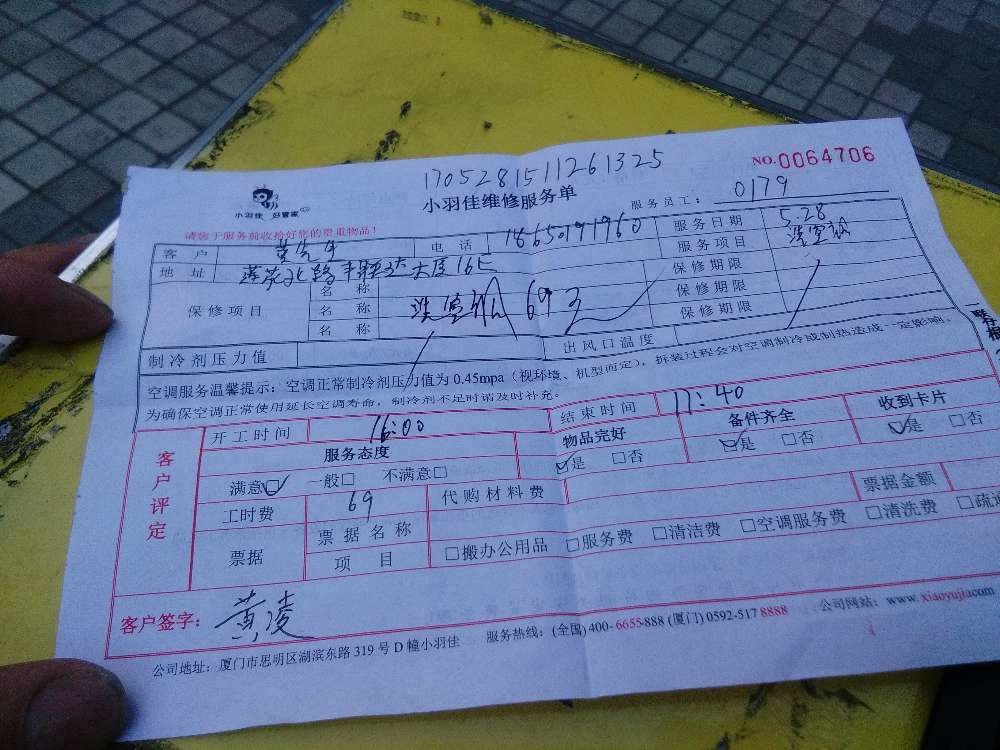 170528151126 1325
NO.0064706
小羽佳 好管家
小羽佳维修服务单
服务员工： 0179
请您于服务前收拾好您的贵重物品！
客 户 黄先生 电 话 18650191960 服务日期 5.28
地 址 莲花北路 大厦16 服务项目 洗空调
保修项目 名 称 保修期限
名 称 洗空调 69元 保修期限
名 称 保修期限
制冷剂压力值 出风口温度
空调服务温馨提示：空调正常制冷剂压力值为 0.45mpa（视环境、机型而定），拆装过程会对空调制冷或制热造成一定影响，
为确保空调正常使用延长空调寿命，制冷剂不足时请及时补充。
客户评定
开工时间 16:00 结束时间 17:40
服务态度 物品完好 备件齐全 收到卡片
满意□ 一般□ 不满意□ □是 □否 □是 □否 □是 □否
工时费 69 代购材料费 票据金额
票据 票据名称
项 目 □搬办公用品 □服务费 □清洁费 □空调服务费 □清洗费 □疏通
客户签字： 黄凌
公司地址：厦门市思明区湖滨东路 319 号 D 幢小羽佳 服务热线：(全国) 400-6655-888 (厦门) 0592-517 8888 公司网站：www.xiaoyujia.com